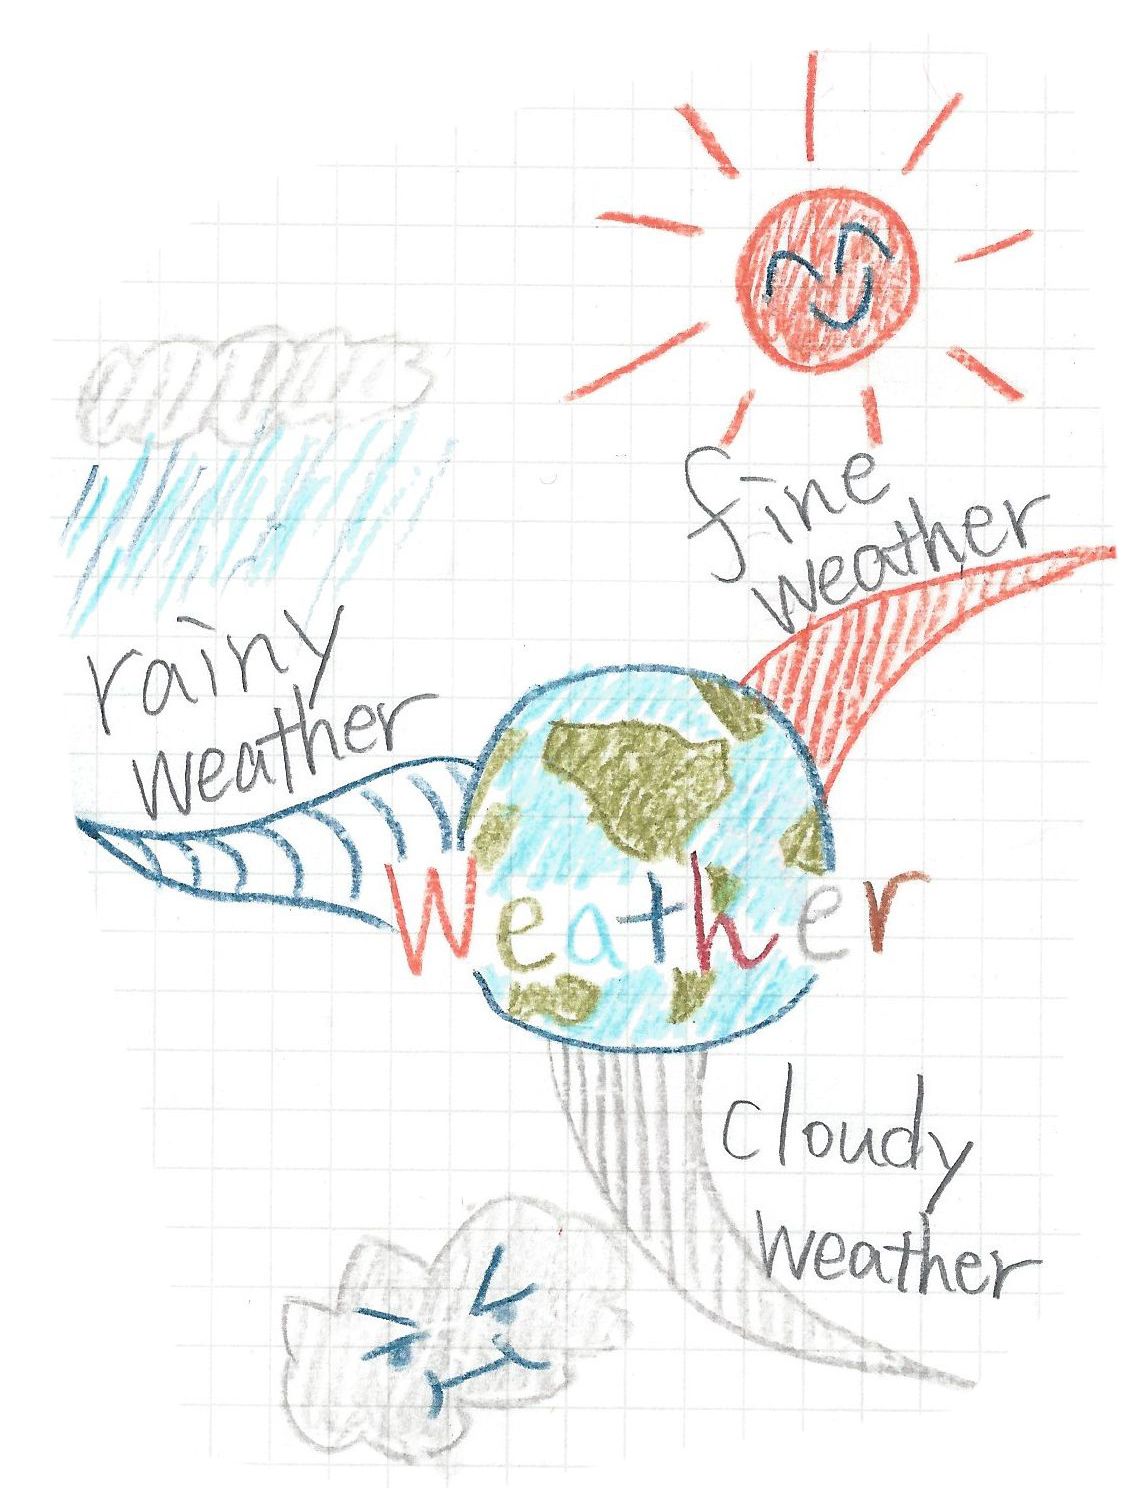 fine
weather
rainy
weather
Weather
cloudy
weather